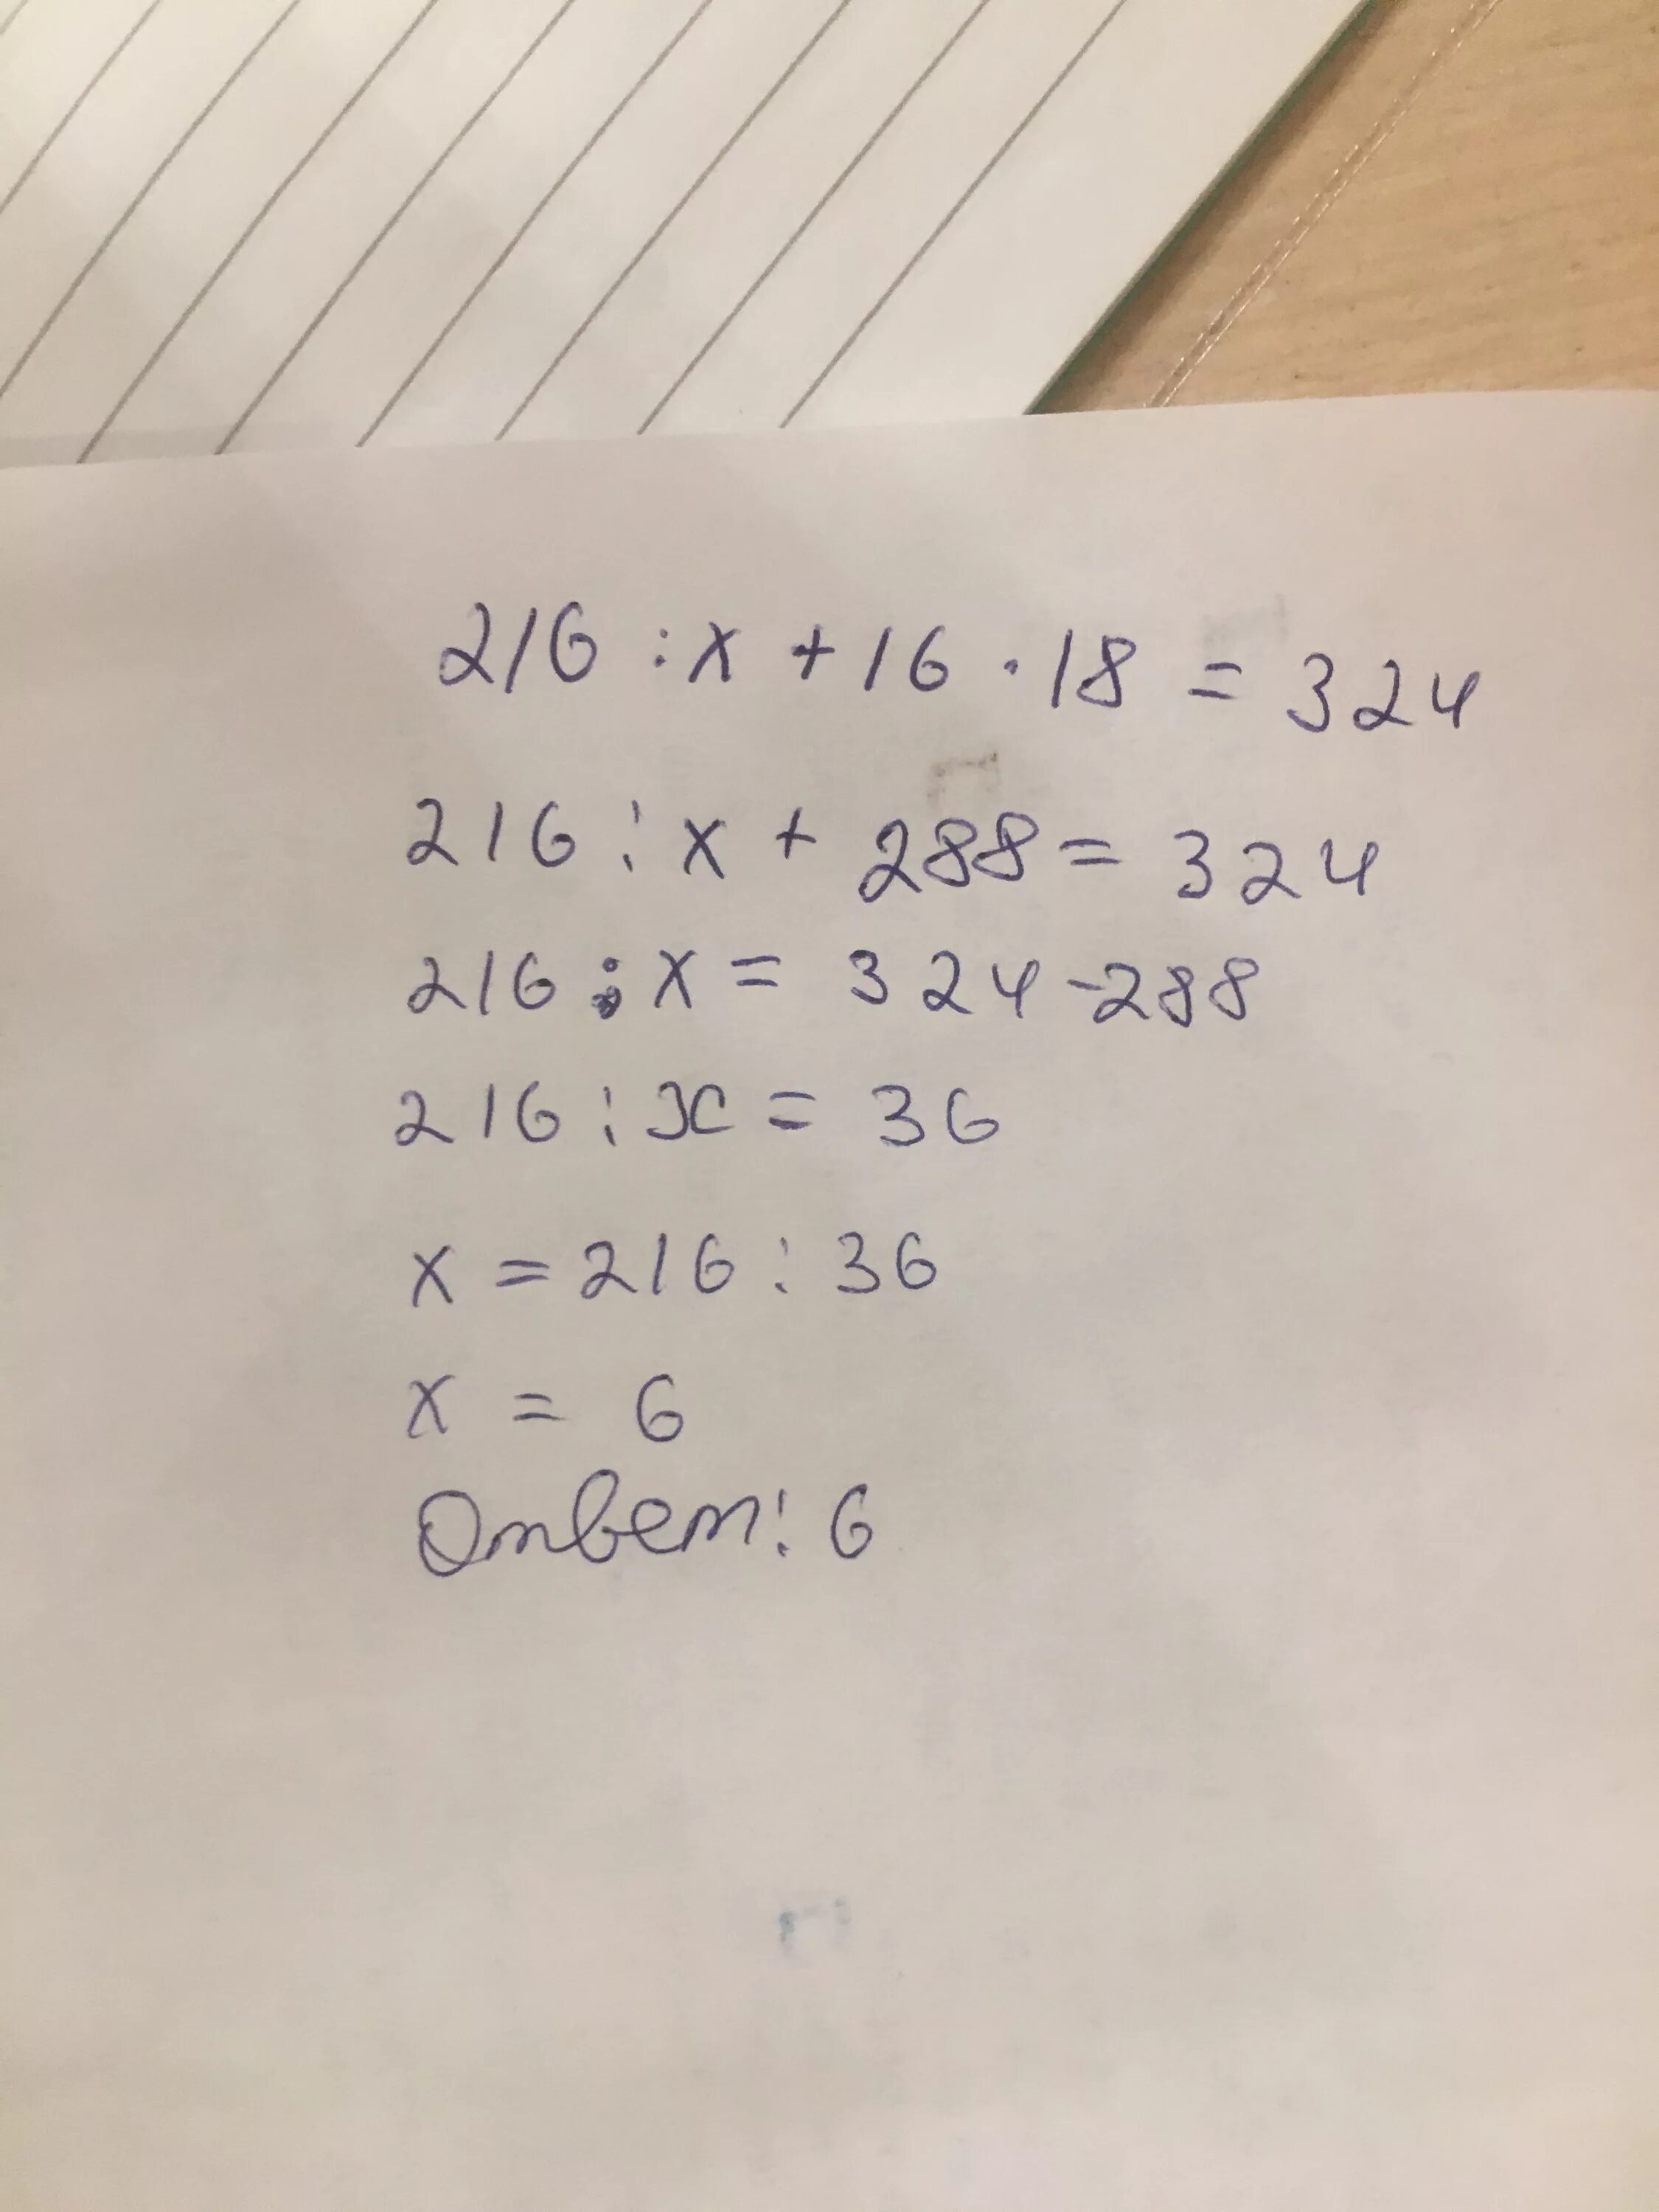 216 : x + 16 · 18 = 324
216 : x + 288 = 324
216 : x = 324 - 288
216 : x = 36
x = 216 : 36
x = 6
Ответ: 6